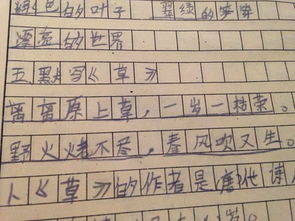 绿色的叶子 翠绿的
漂亮的世界
五、默写《草》
离离原上草,一岁一枯荣。
野火烧不尽,春风吹又生。
1、《草》的作者是唐代诗人